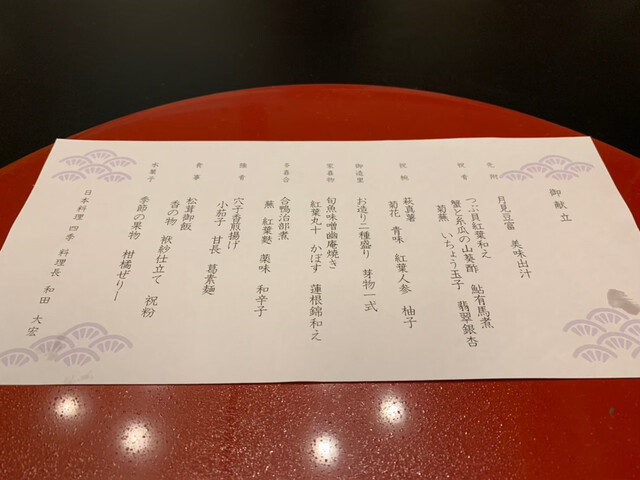 御献立
先附
月見豆富 美味出汁
祝肴
つぶ貝紅葉和え 鮎有馬煮
蟹と糸瓜の山葵酢 翡翠銀杏
菊蕪 いちょう玉子
祝椀
萩真薯
菊花 青味 紅葉人参 柚子
御造里
お造り二種盛り 芽物一式
家喜物
旬魚味噌幽庵焼き
紅葉丸十 かぼす 蓮根錦和え
多喜合
合鴨治部煮
蕪 紅葉麩 薬味 和辛子
強肴
穴子香煎揚げ
小茄子 甘長 葛素麺
食事
松茸御飯
香の物 袱紗仕立て 祝粉
水菓子
季節の果物 柑橘ゼリー
日本料理 四季 料理長 和田 大宏